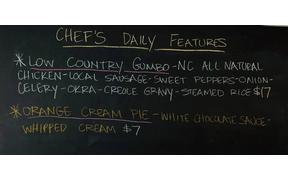 CHEF'S DAILY FEATURES
*LOW COUNTRY GUMBO-NC ALL NATURAL
CHICKEN-LOCAL SAUSAGE-SWEET PEPPERS-ONION-
CELERY-OKRA-CREOLE GRAVY-STEAMED RICE $17
*ORANGE CREAM PIE-WHITE CHOCOLATE SAUCE-
WHIPPED CREAM $7